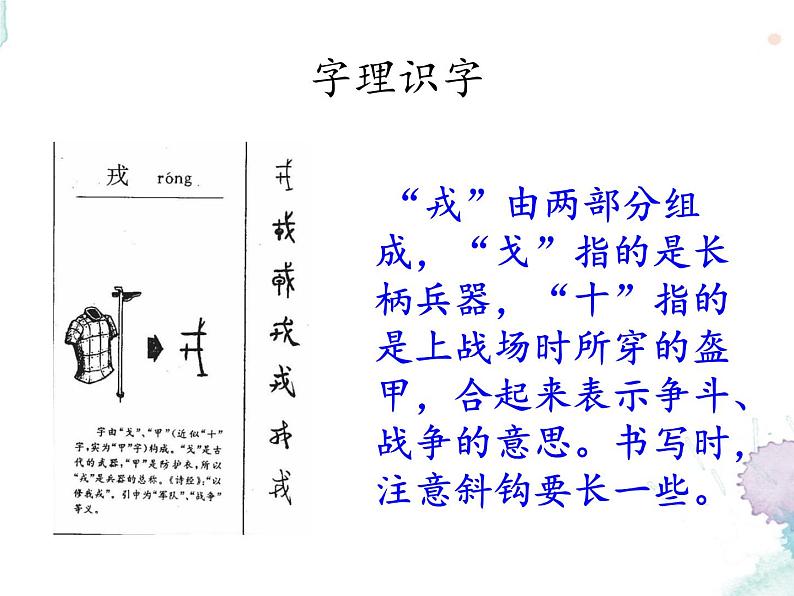 字理识字
戎 róng
字由“戈”、“甲”(近似“十”
字,实为“甲”字)构成。“戈”是古
代的武器,“甲”是防护衣,所以
“戎”是兵器的总称。《诗经》:“以
修我戎”。引申为“军队”、“战争”
等义。
“戎”由两部分组
成，“戈”指的是长
柄兵器，“十”指的
是上战场时所穿的盔
甲，合起来表示争斗、
战争的意思。书写时，
注意斜钩要长一些。